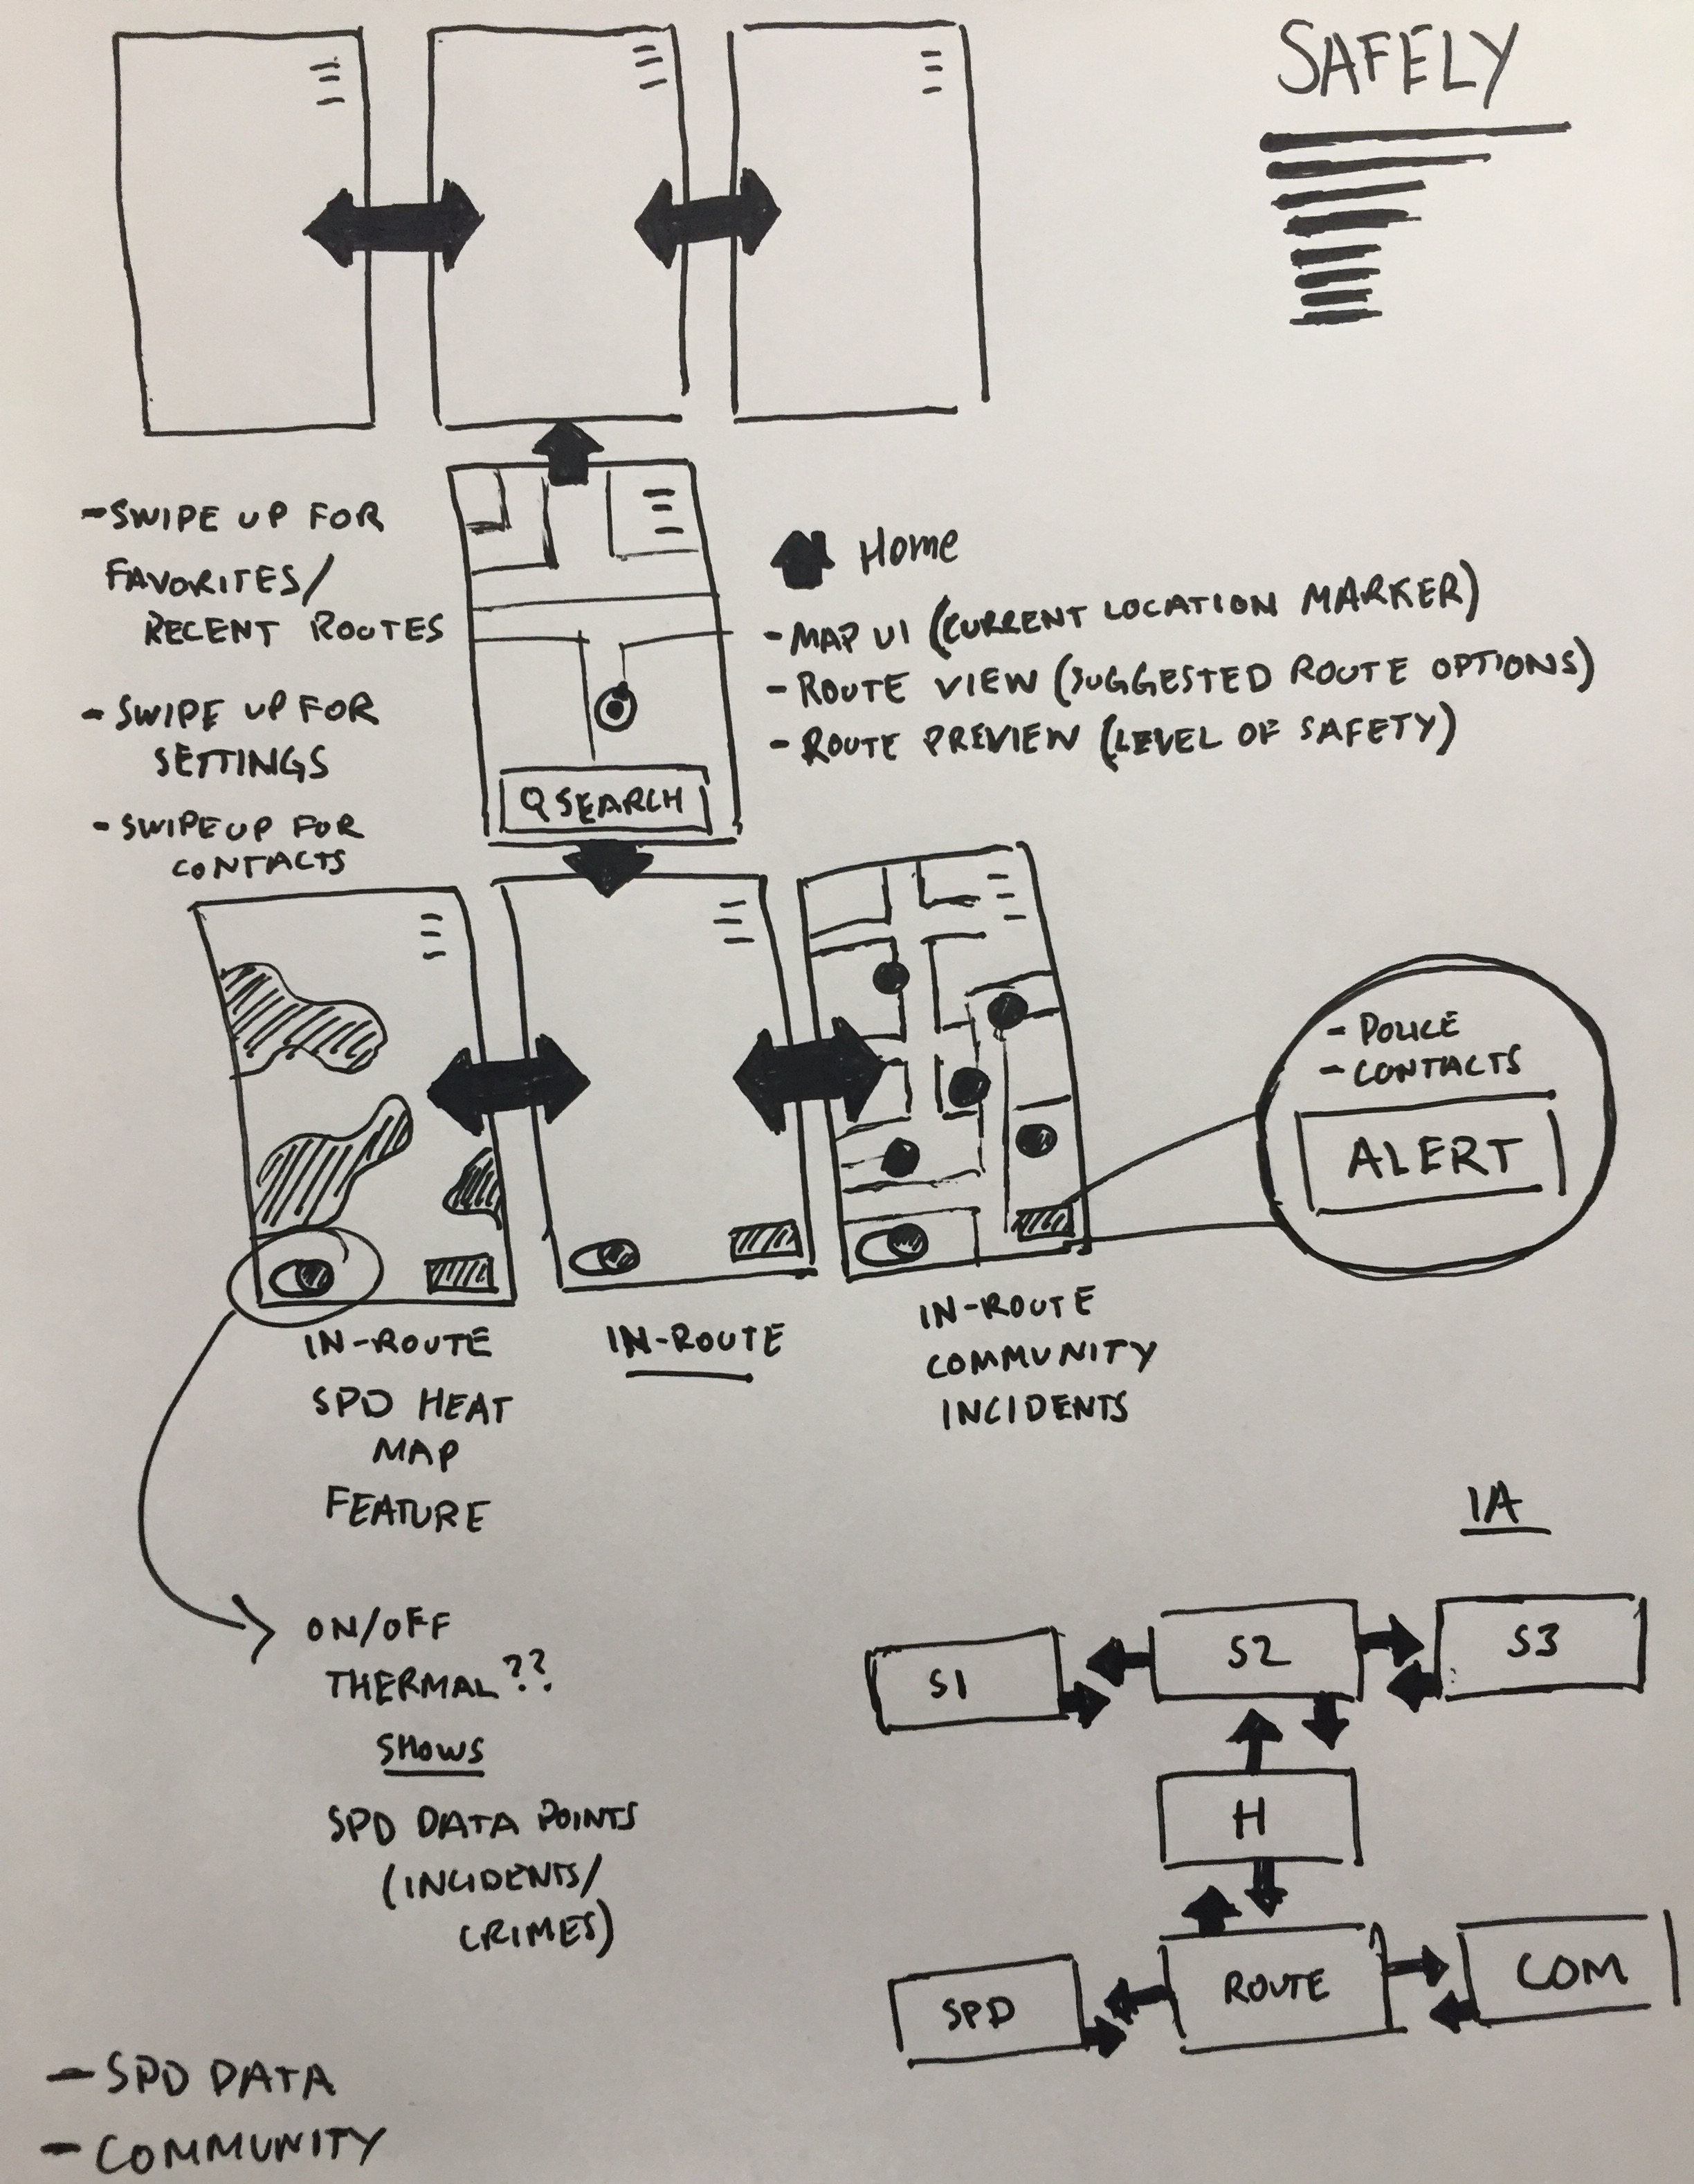 SAFELY
-SWIPE UP FOR
FAVORITES/
RECENT ROUTES
- SWIPE UP FOR
SETTINGS
- SWIPE UP FOR
CONTACTS
Home
- MAP UI (CURRENT LOCATION MARKER)
- ROUTE VIEW (SUGGESTED ROUTE OPTIONS)
- ROUTE PREVIEW (LEVEL OF SAFETY)
SEARCH
- POLICE
- CONTACTS
ALERT
IN-ROUTE
SPD HEAT
MAP
FEATURE
IN-ROUTE
IN-ROUTE
COMMUNITY
INCIDENTS
ON/OFF
THERMAL??
SHOWS
SPD DATA POINTS
(INCIDENTS/
CRIMES)
IA
S1
S2
S3
H
SPD
ROUTE
COM
- SPD DATA
- COMMUNITY